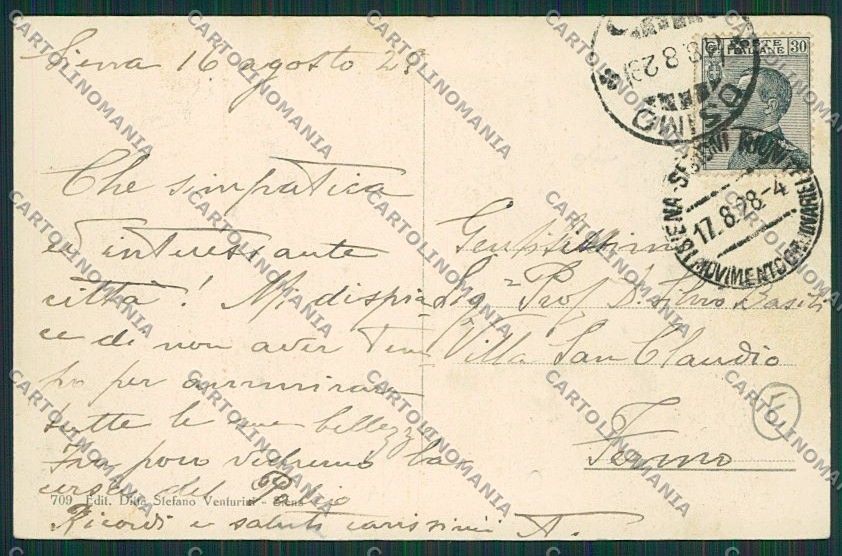 Siena 16 agosto 28
Che simpatica
ed interessante
città! Mi dispia-
ce di non aver tem
po per ammirare
tutte le sue bellezze
Fra poco vedremo la
corsa del Palio
Ricordi e saluti carissimi A.
Gentilissimo
Sig. Prof. D. Silvio Basili
Villa San Claudio
Fermo
POSTE 30
ITALIANE
OSIMO
18.8.28
SIENA
17.8.28-4
MOVIMENTO
709 Edit. Ditta Stefano Venturini - Siena
CARTOLINOMANIA